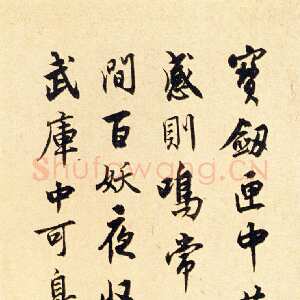 寶劔匣中
感則鳴常
間百妖夜
武庫中可
Shufawang.CN